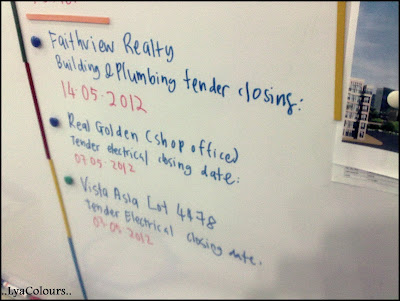 Faithview Realty
Building & Plumbing tender closing:
14.05.2012
Real Golden (shop office)
Tender electrical closing date:
07.05.2012
Vista Asia Lot 4478
Tender Electrical closing date.
03.05.2012
..LyaColours..